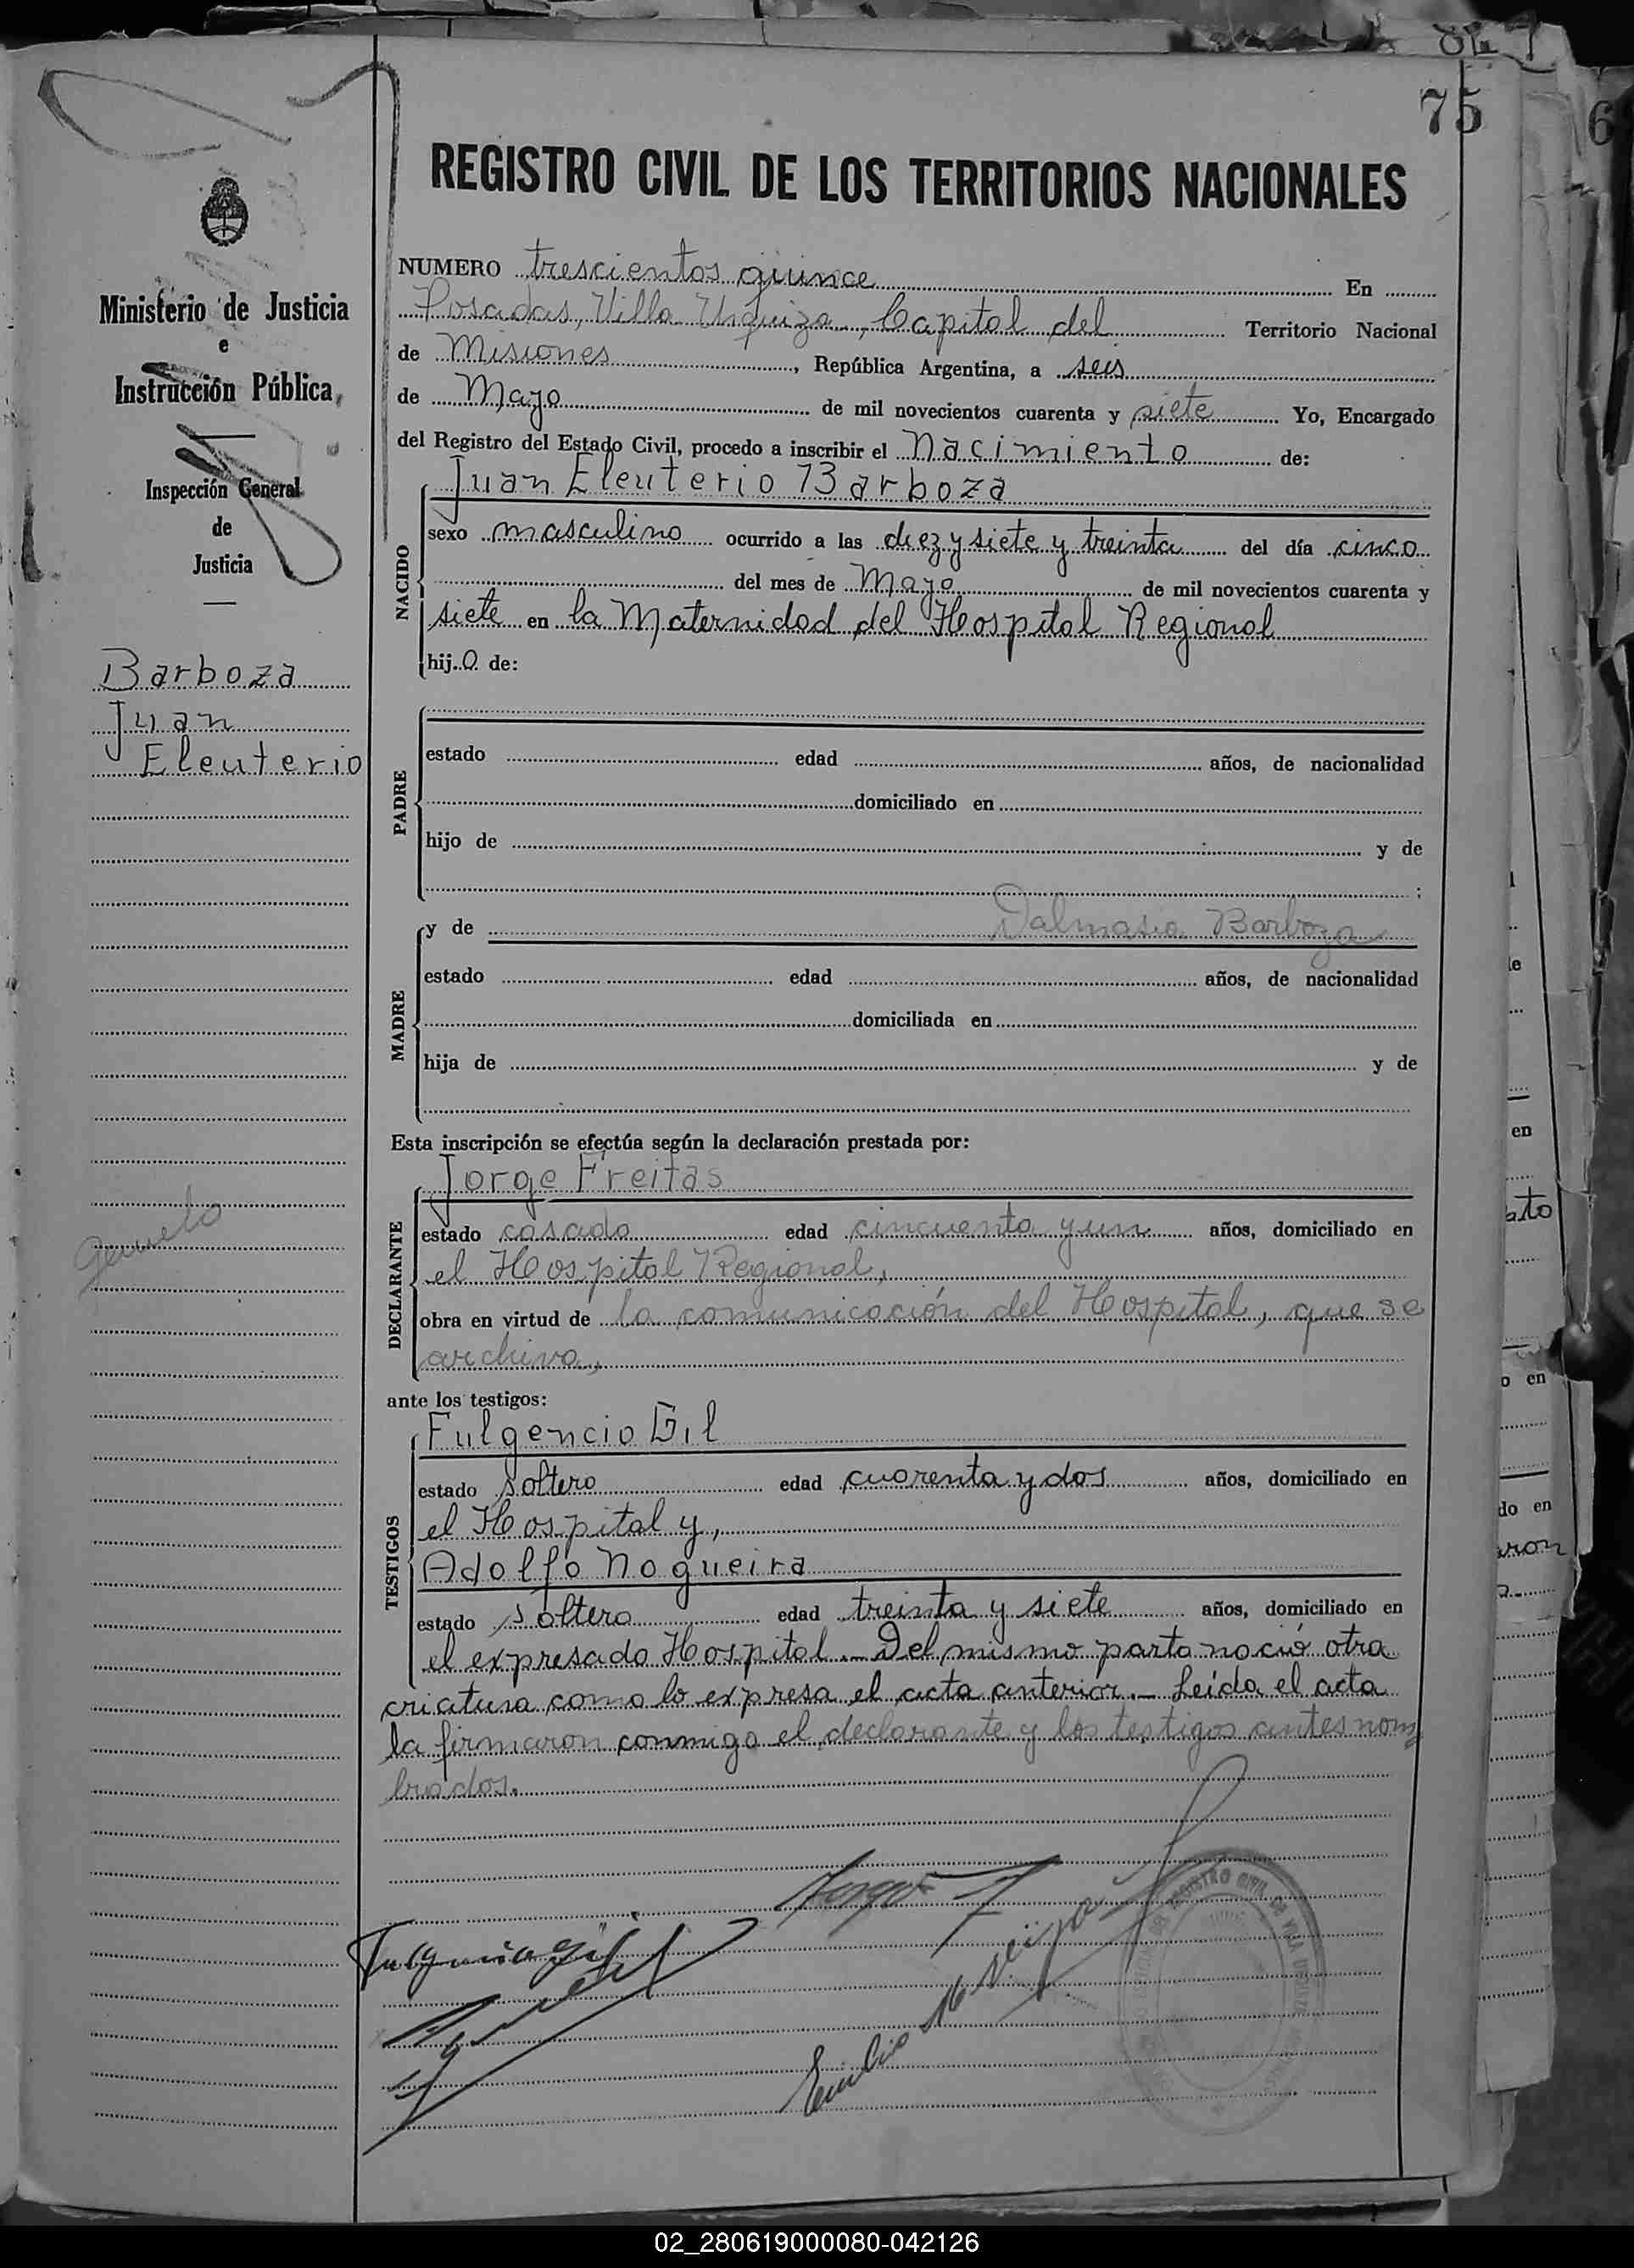 75
REGISTRO CIVIL DE LOS TERRITORIOS NACIONALES
Ministerio de Justicia
e
Instrucción Pública
Inspección General
de
Justicia
Barboza
Juan
Eleuterio
Gemelo
NUMERO trescientos quince En
Posadas, Villa Urquiza, Capital del Territorio Nacional
de Misiones, República Argentina, a seis
de Mayo de mil novecientos cuarenta y siete Yo, Encargado
del Registro del Estado Civil, procedo a inscribir el nacimiento de:
Juan Eleuterio Barboza
NACIDO
sexo masculino ocurrido a las diez y siete y treinta del día cinco
del mes de Mayo de mil novecientos cuarenta y
siete en la Maternidad del Hospital Regional
hijo de:
PADRE
estado edad años, de nacionalidad
domiciliado en
hijo de y de
;
MADRE
y de Dalmasia Barboza
estado edad años, de nacionalidad
domiciliada en
hija de y de
Esta inscripción se efectúa según la declaración prestada por:
DECLARANTE
Jorge Freitas
estado casado edad cincuenta y un años, domiciliado en
el Hospital Regional,
obra en virtud de la comunicación del Hospital, que se
archiva,
ante los testigos:
TESTIGOS
Fulgencio Gil
estado soltero edad cuarenta y dos años, domiciliado en
el Hospital y,
Adolfo Nogueira
estado soltero edad treinta y siete años, domiciliado en
el expresado Hospital.- Del mismo parto nació otra
criatura como lo expresa el acta anterior.- Leída el acta
la firmaron conmigo el declarante y los testigos antes nom
brados.
Jorge F
Fulgencio Gil
Emilio
REGISTRO CIVIL DE VILLA URQUIZA
6
02_280619000080-042126